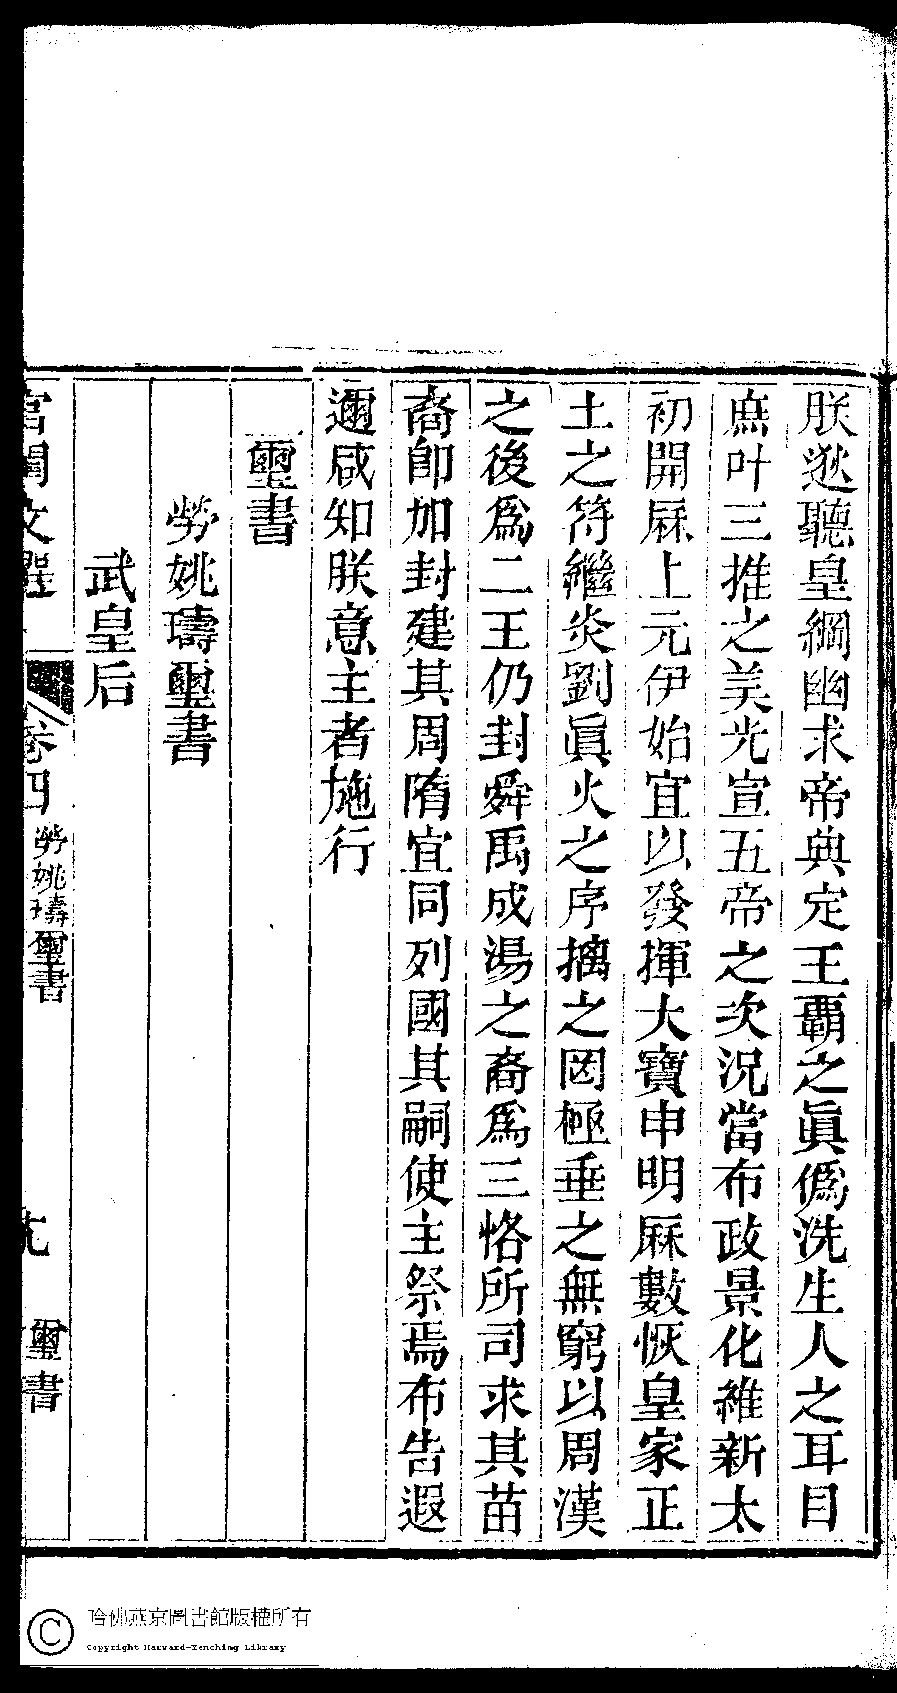 朕逖聽皇綱幽求帝典定王霸之眞僞洗生人之耳目
庶叶三推之美光宣五帝之次況當布政景化維新太
初開厤上元伊始宜以發揮大寶申明厤數恢皇家正
土之符繼炎劉眞火之序摛之罔極垂之無窮以周漢
之後爲二王仍封舜禹成湯之裔爲三恪所司求其苗
裔卽加封建其周隋宜同列國其嗣使主祭焉布告遐
邇咸知朕意主者施行
璽書
勞姚璹璽書
武皇后
宮閨文選
卷四
勞姚璹璽書
璽書
哈佛燕京圖書館版權所有
Copyright Harvard-Yenching Library